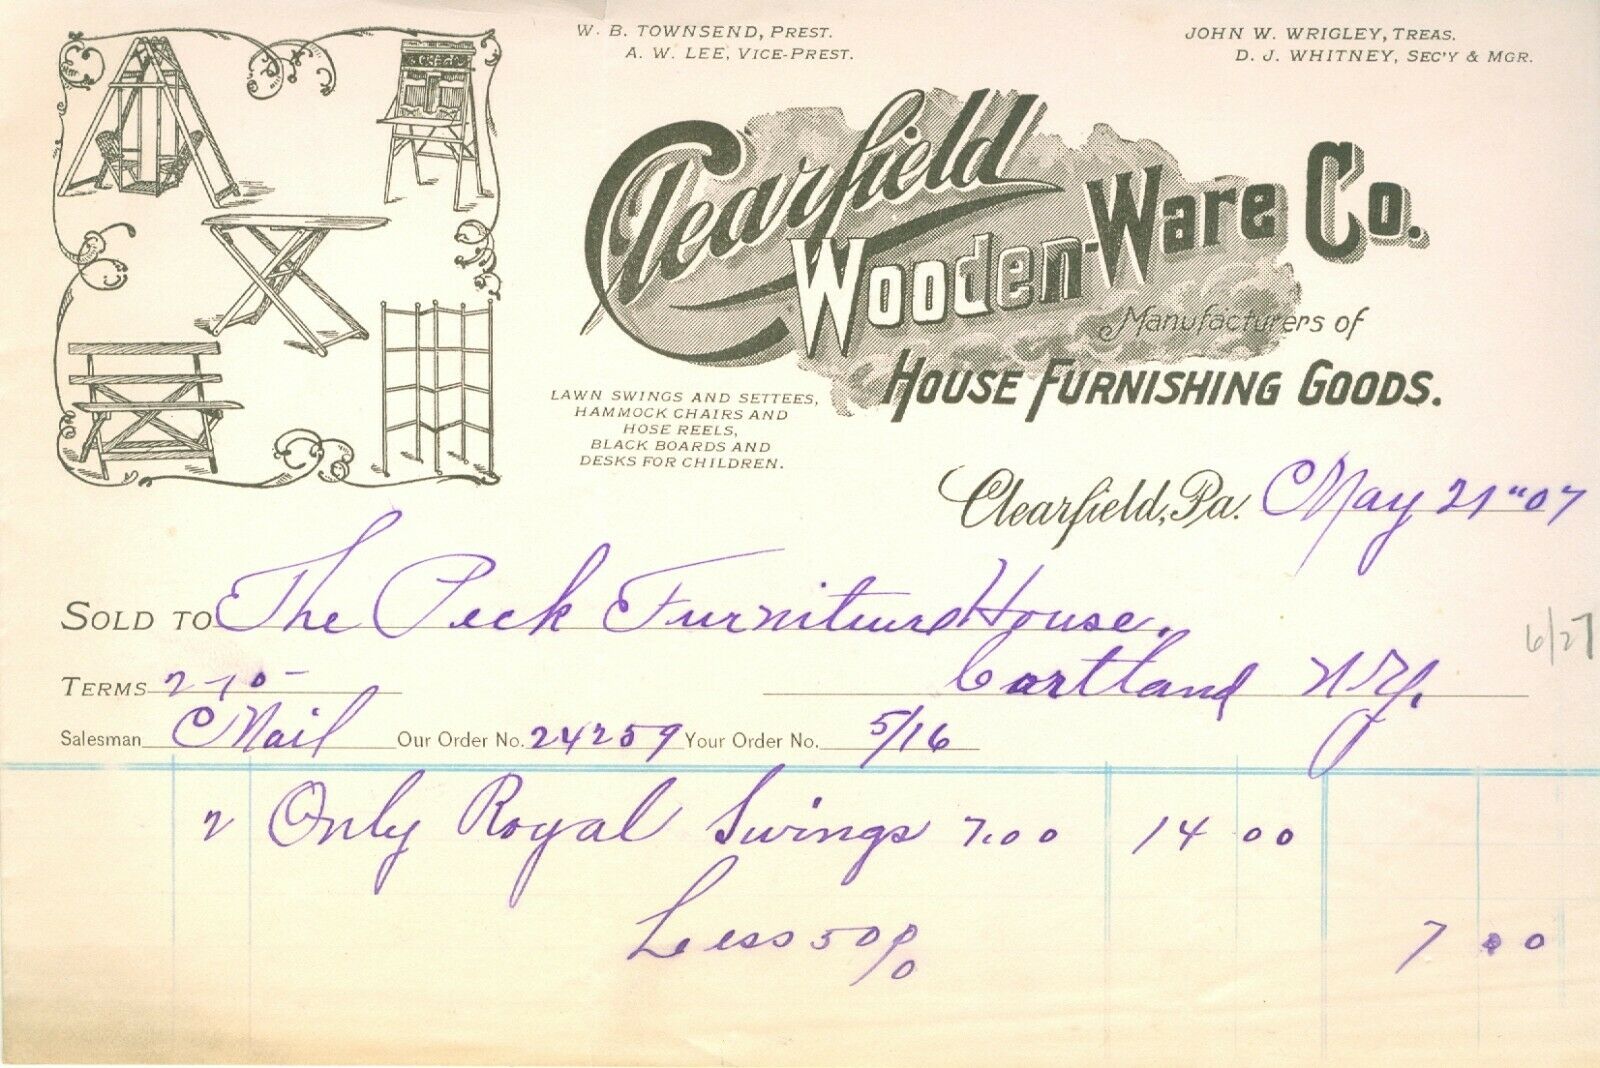 W. B. TOWNSEND, PREST.
A. W. LEE, VICE-PREST.
JOHN W. WRIGLEY, TREAS.
D. J. WHITNEY, SEC'Y & MGR.
Clearfield
Wooden-Ware Co.
Manufacturers of
HOUSE FURNISHING GOODS.
LAWN SWINGS AND SETTEES,
HAMMOCK CHAIRS AND
HOSE REELS,
BLACK BOARDS AND
DESKS FOR CHILDREN.
Clearfield, Pa. May 21" 07
SOLD TO The Peck Furniture House.
6/27
TERMS 2-10- Cortland N.Y.
Salesman Mail Our Order No. 24259 Your Order No. 5/16
2 Only Royal Swings 7.00 14 00
Less 50% 7 00